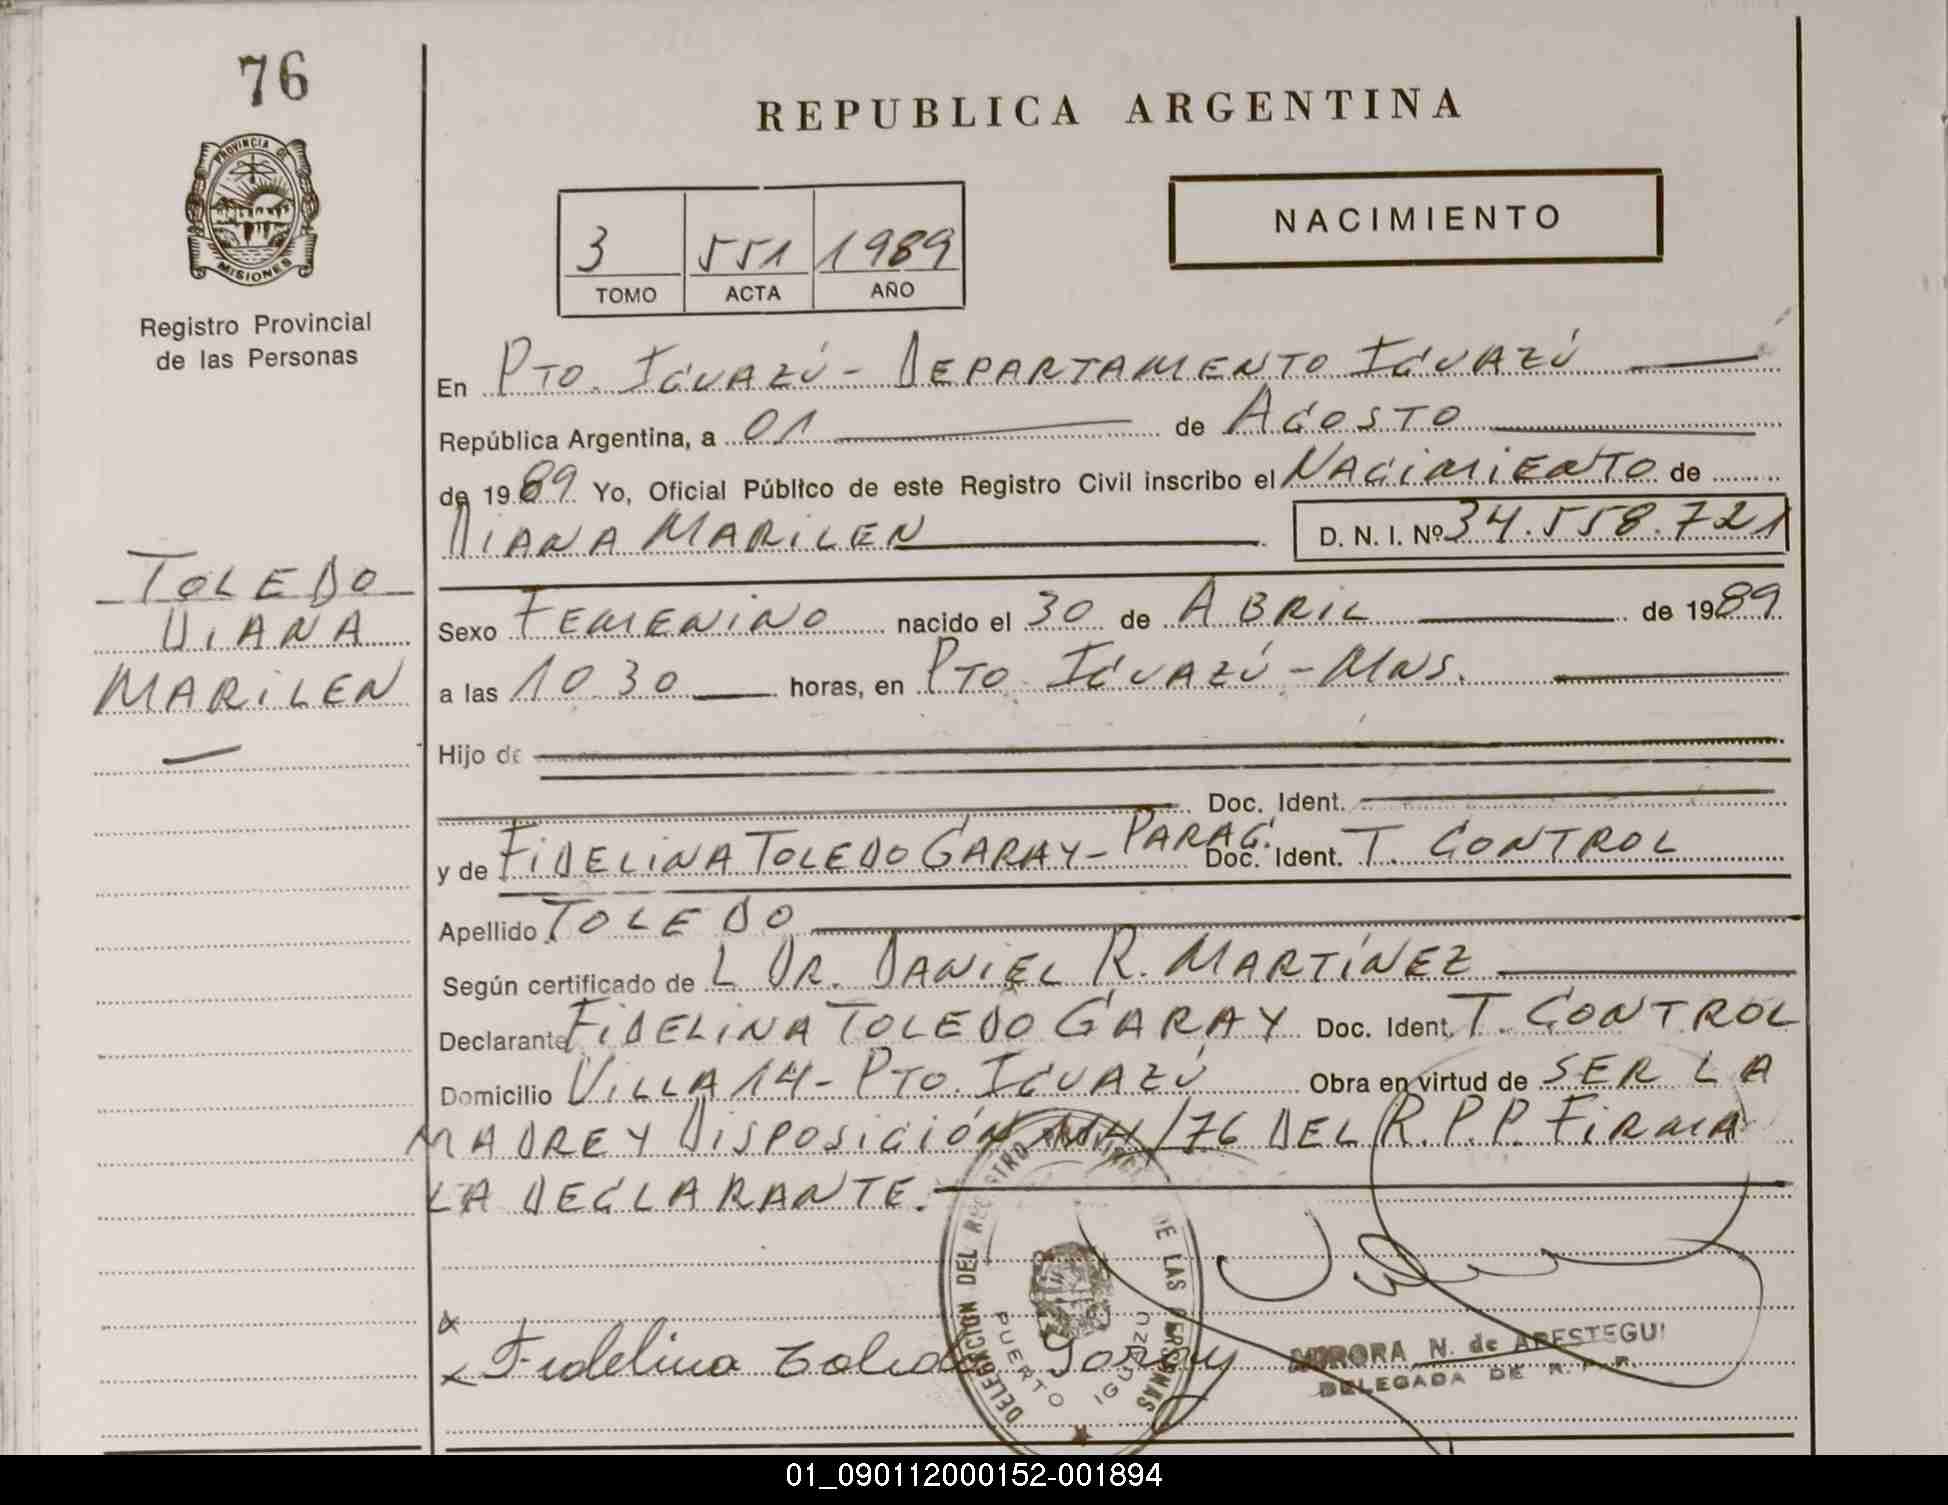 76
PROVINCIA DE
MISIONES
Registro Provincial
de las Personas
TOLEDO
DIANA
MARILEN
REPUBLICA ARGENTINA
NACIMIENTO
3 551 1989
TOMO ACTA AÑO
En PTO. IGUAZÚ - DEPARTAMENTO IGUAZÚ
República Argentina, a 01 de AGOSTO
de 1989 Yo, Oficial Público de este Registro Civil inscribo el NACIMIENTO de
DIANA MARILEN D. N. I. Nº 34.558.721
Sexo FEMENINO nacido el 30 de ABRIL de 1989
a las 10 30 horas, en PTO. IGUAZÚ - MNS.
Hijo de
Doc. Ident.
y de FIDELINA TOLEDO GARAY - PARAG. Doc. Ident. T. CONTROL
Apellido TOLEDO
Según certificado de L DR. DANIEL R. MARTÍNEZ
Declarante FIDELINA TOLEDO GARAY Doc. Ident. T. CONTROL
Domicilio VILLA 14 - PTO. IGUAZÚ Obra en virtud de SER LA
MADRE Y DISPOSICIÓN /76 DEL R.P.P. FIRMA
LA DECLARANTE.
DELEGACION DEL REGISTRO PROVINCIAL DE LAS PERSONAS
PUERTO IGUAZU
Fidelina Toledo Garay
AURORA N. de ARESTEGUI
DELEGADA DE R. P. P.
01_090112000152-001894